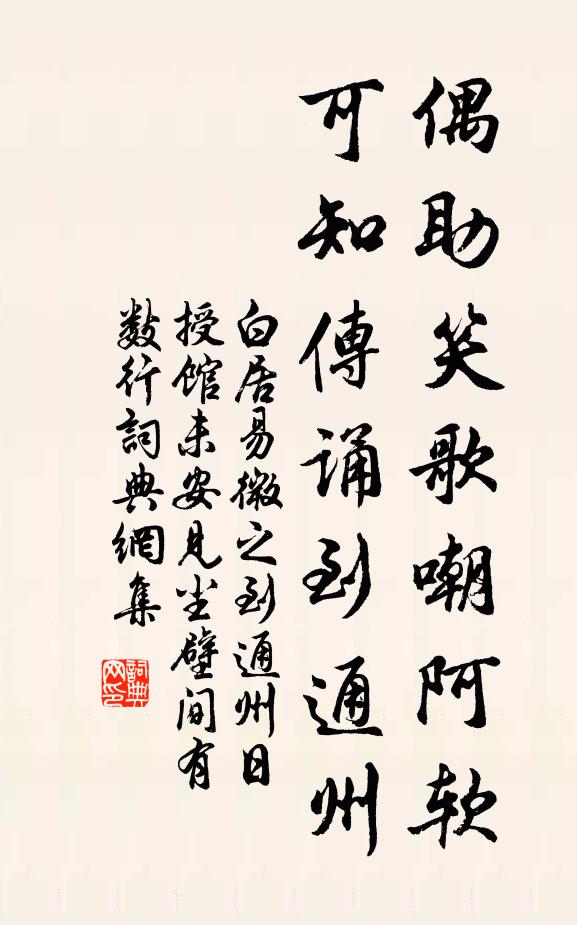 偶助笑歌嘲阿软
可知傳誦到通州
白居易微之到通州日
授館未安見尘壁间有
数行詞典網集
詞典
网印